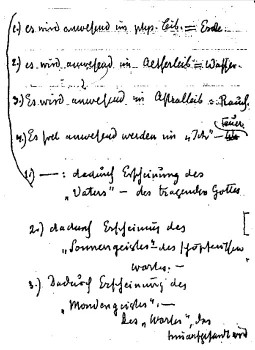 1.) es wird anwesend im phys. Leib. = Erde.
2.) es wird anwesend im Aetherleib = Wasser.
3.) Es wird anwesend im Astralleib = Rauch,
Feuer
4.) Es soll anwesend werden im „Ich" –
1.) —: dadurch Erscheinung des
„Vaters" – des tragenden Gottes.
2.) dadurch Erscheinung des
„Sonnengeistes" des schöpferischen
Wortes. –
3.) Dadurch Erscheinung des
„Mondengeistes". –
des „Wortes", das
hinaufgesandt wird